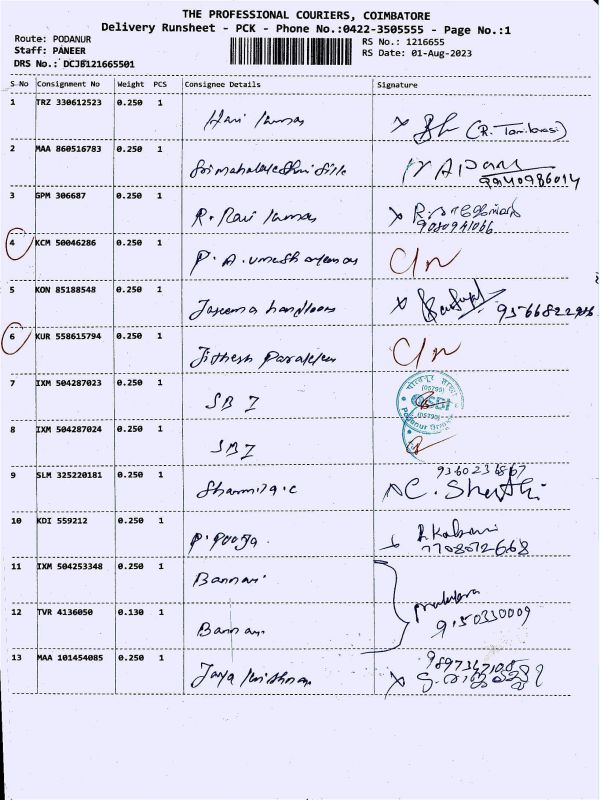 THE PROFESSIONAL COURIERS, COIMBATORE
Delivery Runsheet - PCK - Phone No.:0422-3505555 - Page No.:1
Route: PODANUR
Staff: PANEER
DRS No.: DCJB121665501
RS No.: 1216655
RS Date: 01-Aug-2023
S No Consignment No Weight PCS Consignee Details Signature
1 TRZ 330612523 0.250 1 Hari Kumar (R. Tamilarasi)
2 MAA 860516783 0.250 1
9940986014
3 GPM 306687 0.250 1 R. Ravi Kumar
9080941066
4 KCM 50046286 0.250 1 P. A. C/n
5 KON 85188548 0.250 1 Jaseema handlooms
6 KUR 558615794 0.250 1 Jithesh C/n
7 IXM 504287023 0.250 1 SBI
8 IXM 504287024 0.250 1 SBI
9 SLM 325220181 0.250 1 Sharmila.c C.
10 KDI 559212 0.250 1 P. Pooja.
7708072668
11 IXM 504253348 0.250 1 Bannari
12 TVR 4136050 0.130 1 Bannari
9150330009
13 MAA 101454085 0.250 1 Jaya Krishnan